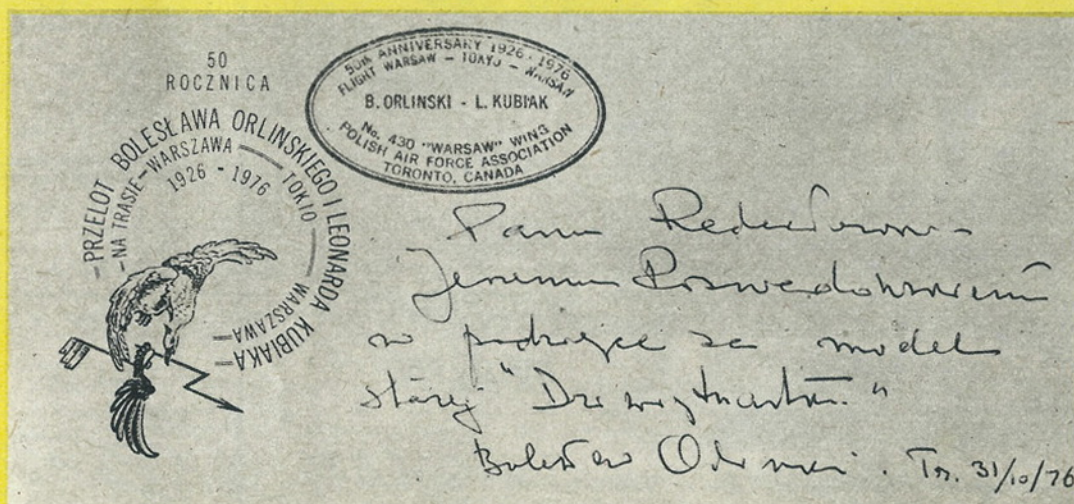 50
ROCZNICA
PRZELOT BOLESŁAWA ORLINSKIEGO I LEONARDA KUBIAKA
NA TRASIE-WARSZAWA - TOKIO - WARSZAWA
1926 - 1976
50th ANNIVERSARY 1926 - 1976
FLIGHT WARSAW - TOKYO - WARSAW
B. ORLINSKI - L. KUBIAK
No. 430 "WARSAW" WING
POLISH AIR FORCE ASSOCIATION
TORONTO, CANADA
Panu Redaktorowi
w podzięce za model
starej "
Bolesław Orliński. Tor. 31/10/76